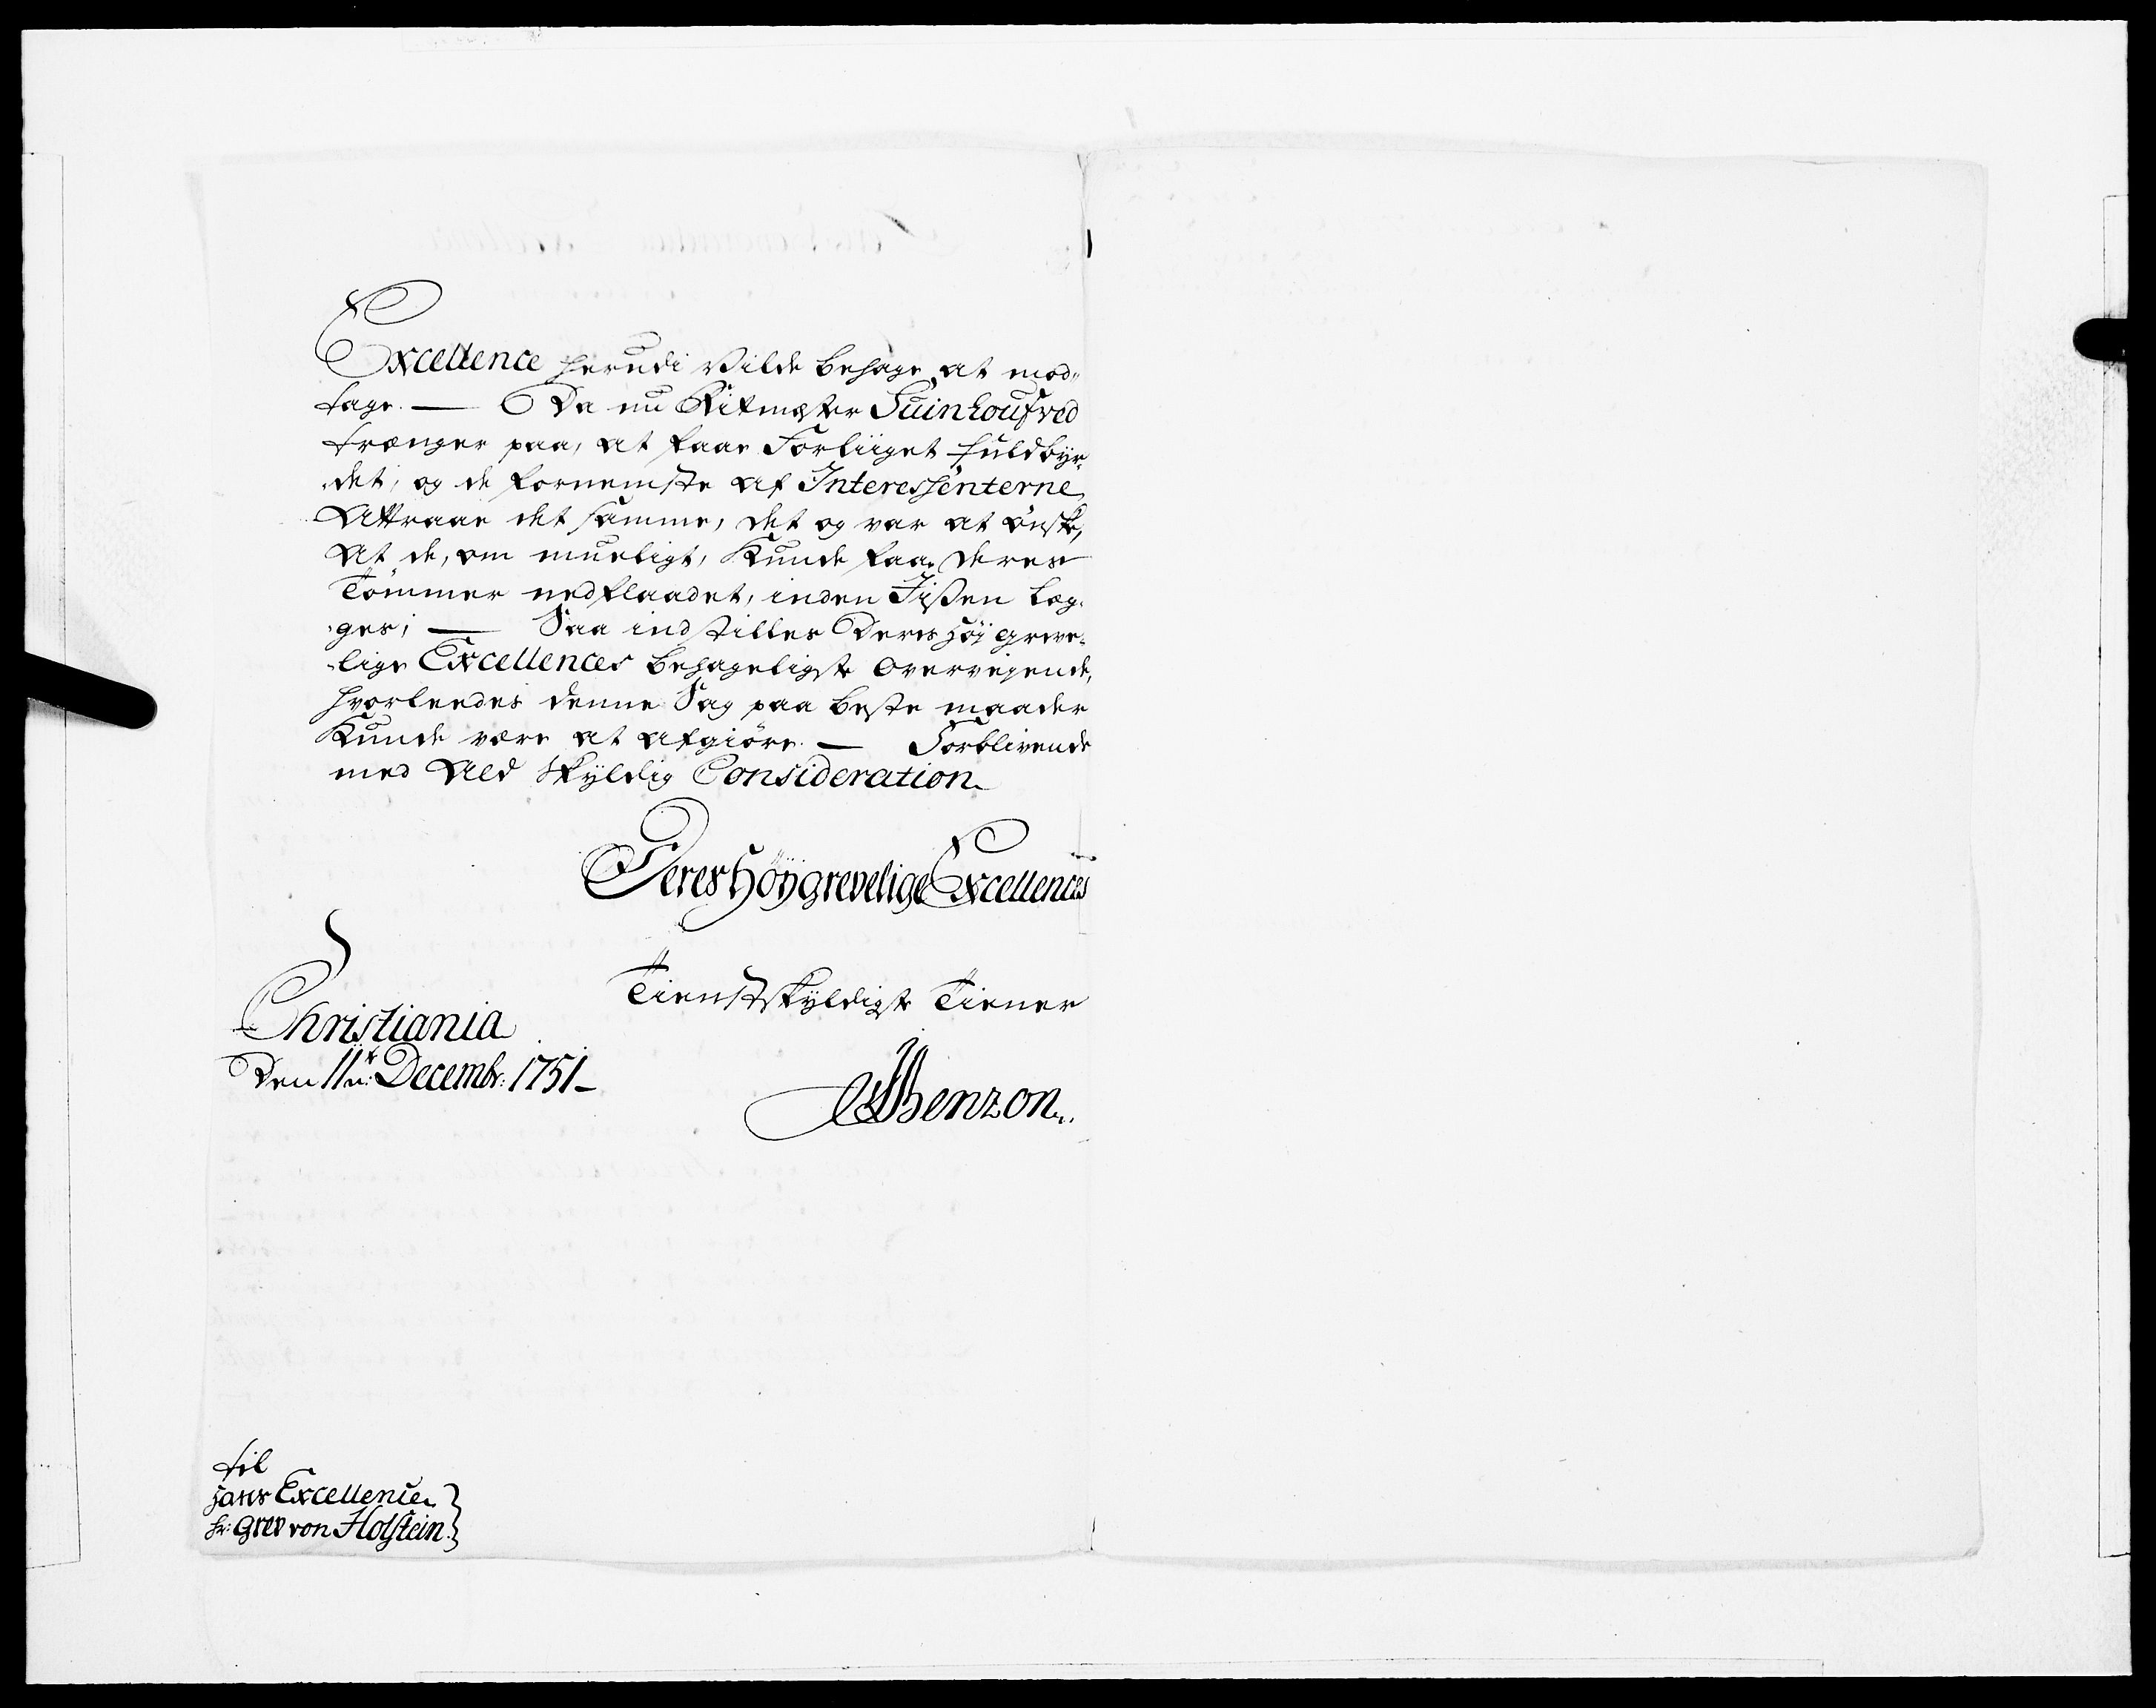 Excellence herudi Vilde behage at mod„
tage. — Da nu Ritmester Suinhoufved
trænger paa, at faae Forliiget fuldbyr„
„det, og de fornemste af Interessenterne
Attraae det samme, det og var at ønske,
At de, om mueligt, Kunde faae deres
Tømmer nedflaadet, inden Jisen læg„
„ges; — Saa indstilles Deres Høy greve„
„lige Excellences behageligste overvejende,
hvorleedes denne Sag paa beste maader
Kunde være at afgiøre. — Forblivende
med Ald skyldig Consideration
Deres Höygrevelige Excellences
Tienstskyldigste Tiener
Christiania
Den 11te Decembr: 1751
Benzon
Til
Hans Excellence
Hr: Grev von Holstein